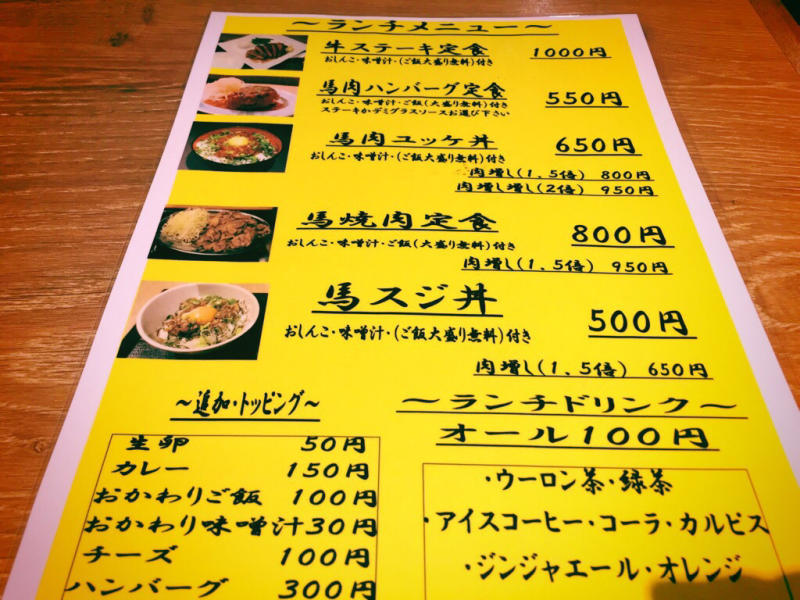 ～ランチメニュー～
牛ステーキ定食 1000円
おしんこ・味噌汁・(ご飯大盛り無料)付き
馬肉ハンバーグ定食 550円
おしんこ・味噌汁・ご飯(大盛り無料)付き
ステーキかデミグラスソースお選び下さい
馬肉ユッケ丼 650円
おしんこ・味噌汁・(ご飯大盛り無料)付き
肉増し(1.5倍) 800円
肉増し増し(2倍) 950円
馬焼肉定食 800円
おしんこ・味噌汁・ご飯(大盛り無料)付き
肉増し(1.5倍) 950円
馬スジ丼 500円
おしんこ・味噌汁・(ご飯大盛り無料)付き
肉増し(1.5倍) 650円
～追加・トッピング～
生卵 50円
カレー 150円
おかわりご飯 100円
おかわり味噌汁30円
チーズ 100円
ハンバーグ 300円
～ランチドリンク～
オール100円
・ウーロン茶・緑茶
・アイスコーヒー・コーラ・カルピス
・ジンジャエール・オレンジ